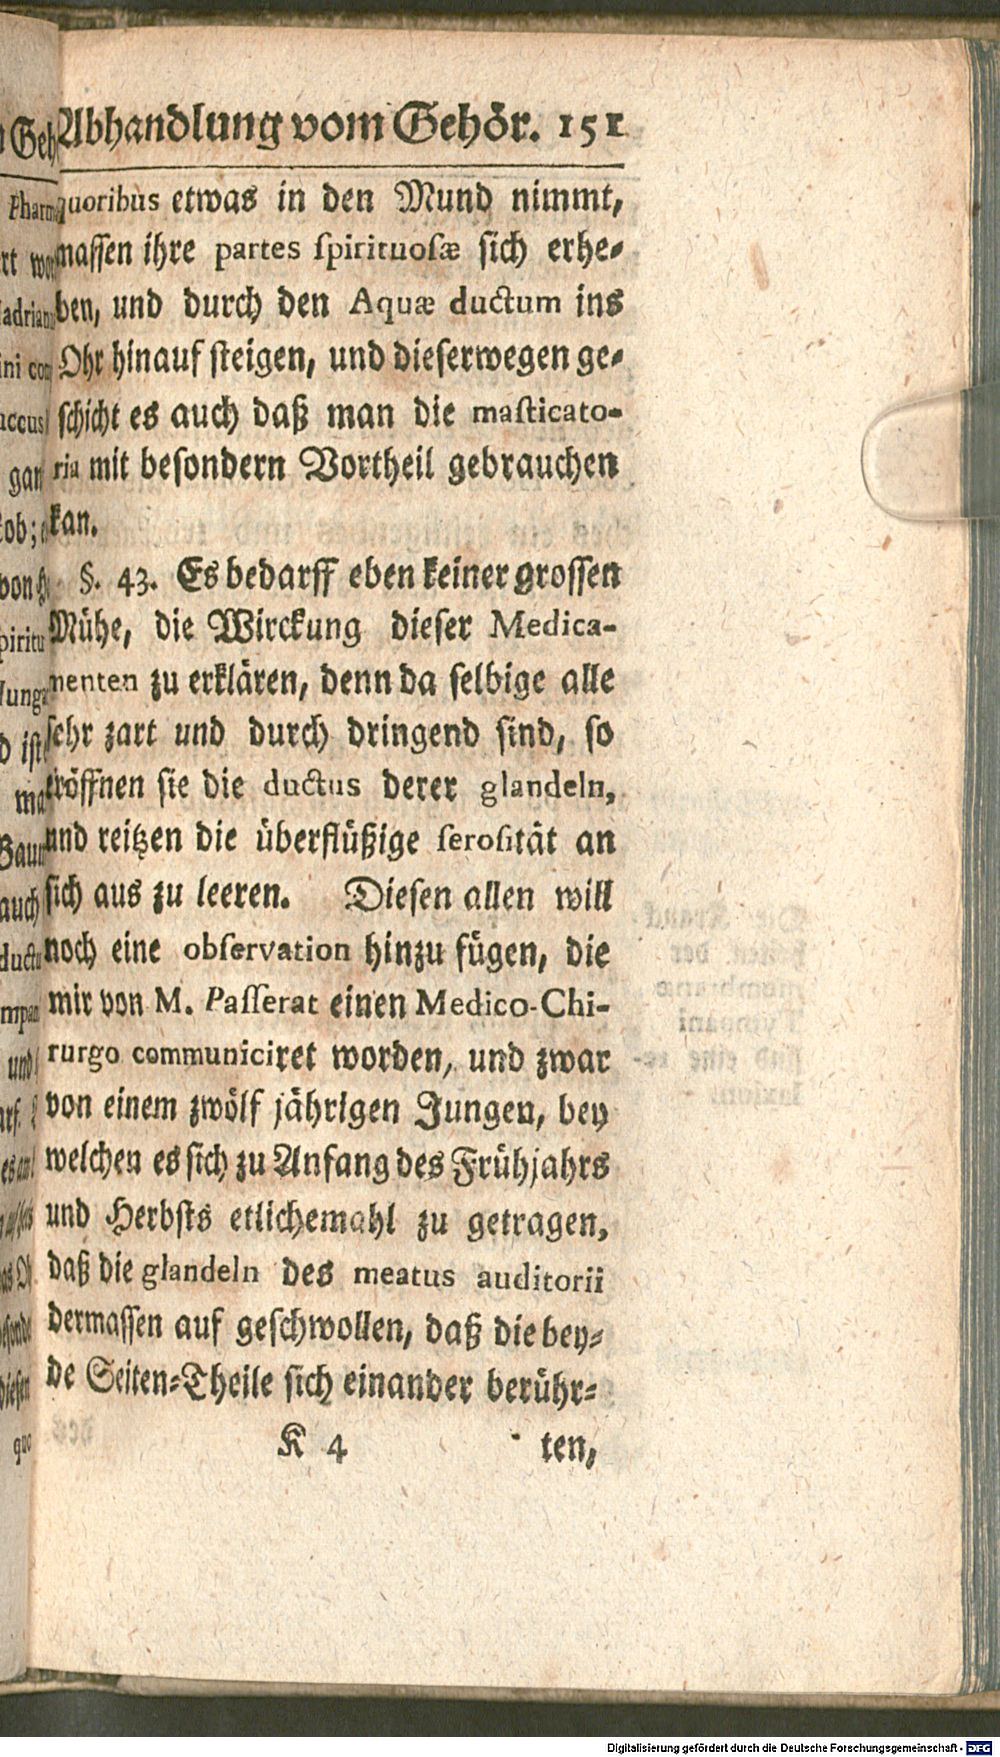 Abhandlung vom Gehör. 151
quoribus etwas in den Mund nimmt,
massen ihre partes spirituosæ sich erhe-
ben, und durch den Aquæ ductum ins
Ohr hinauf steigen, und dieserwegen ge-
schicht es auch daß man die masticato-
ria mit besondern Vortheil gebrauchen
kan.
§. 43. Es bedarff eben keiner grossen
Mühe, die Wirckung dieser Medica-
menten zu erklären, denn da selbige alle
sehr zart und durch dringend sind, so
eröffnen sie die ductus derer glandeln,
und reitzen die überflüßige serosität an
sich aus zu leeren. Diesen allen will
noch eine observation hinzu fügen, die
mir von M. Passerat einen Medico-Chi-
rurgo communiciret worden, und zwar
von einem zwölf jährigen Jungen, bey
welchen es sich zu Anfang des Frühjahrs
und Herbsts etlichemahl zu getragen,
daß die glandeln des meatus auditorii
dermassen auf geschwollen, daß die bey-
de Seiten-Theile sich einander berühr-
K 4 ten,
Digitalisierung gefördert durch die Deutsche Forschungsgemeinschaft - DFG